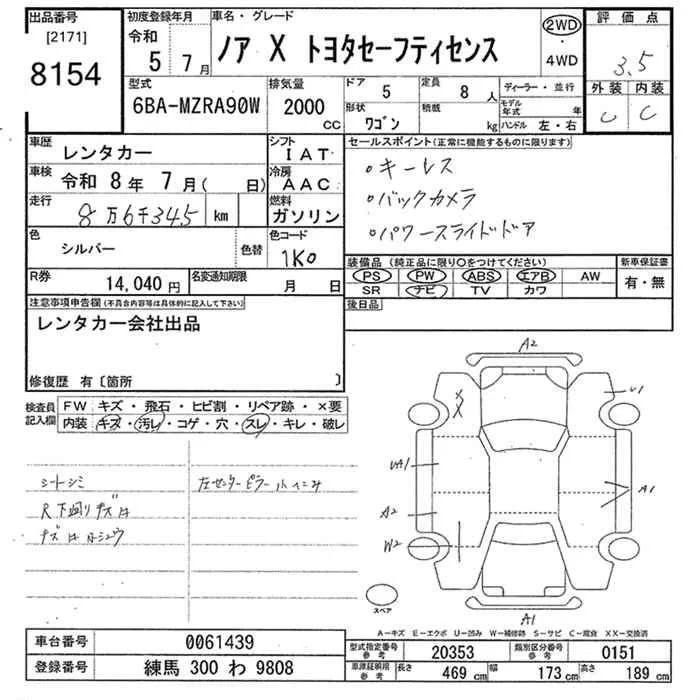 出品番号 [2171] 8154
初度登録年月 令和 5 7月
車名・グレード ノア X トヨタセーフティセンス
2WD ・ 4WD
評価点 3.5
外装 内装
C C
型式 6BA-MZRA90W
排気量 2000 CC
ドア 5
定員 8 人
形状 ワゴン
積載 kg
ディーラー・並行
モデル年式 年
ハンドル 左・右
車歴 レンタカー
シフト IAT
車検 令和 8年 7月( 日)
冷房 AAC
走行 8万6千345 km
燃料 ガソリン
色 シルバー
色替
色コード 1K0
R券 14,040 円
名変通知期限 月 日
セールスポイント(正常に機能するものに限ります)
・キーレス
・バックカメラ
・パワースライドドア
装備品(純正品に限り○をつけてください)
新車保証書
PS PW ABS エアB AW
SR ナビ TV カワ
有・無
後日品
注意事項申告欄(不具合内容等は具体的に記入して下さい)
レンタカー会社出品
修復歴 有〔箇所 〕
検査員記入欄
FW キズ・飛石・ヒビ割・リペア跡・×要
内装 キズ・汚レ・コゲ・穴・スレ・キレ・破レ
シートシミ
R下廻りキズ
左センターピラー小ヘコミ
A2
U1
XX
UA1
A2
W2
A1
A1
スペア
A-キズ E-エクボ U-凹み W-補修跡 S-サビ C-腐食 XX-交換済
車台番号 0061439
登録番号 練馬 300 わ 9808
型式指定番号 参考 20353
類別区分番号 参考 0151
車庫証明用 参考 長さ 469 cm 幅 173 cm 高さ 189 cm